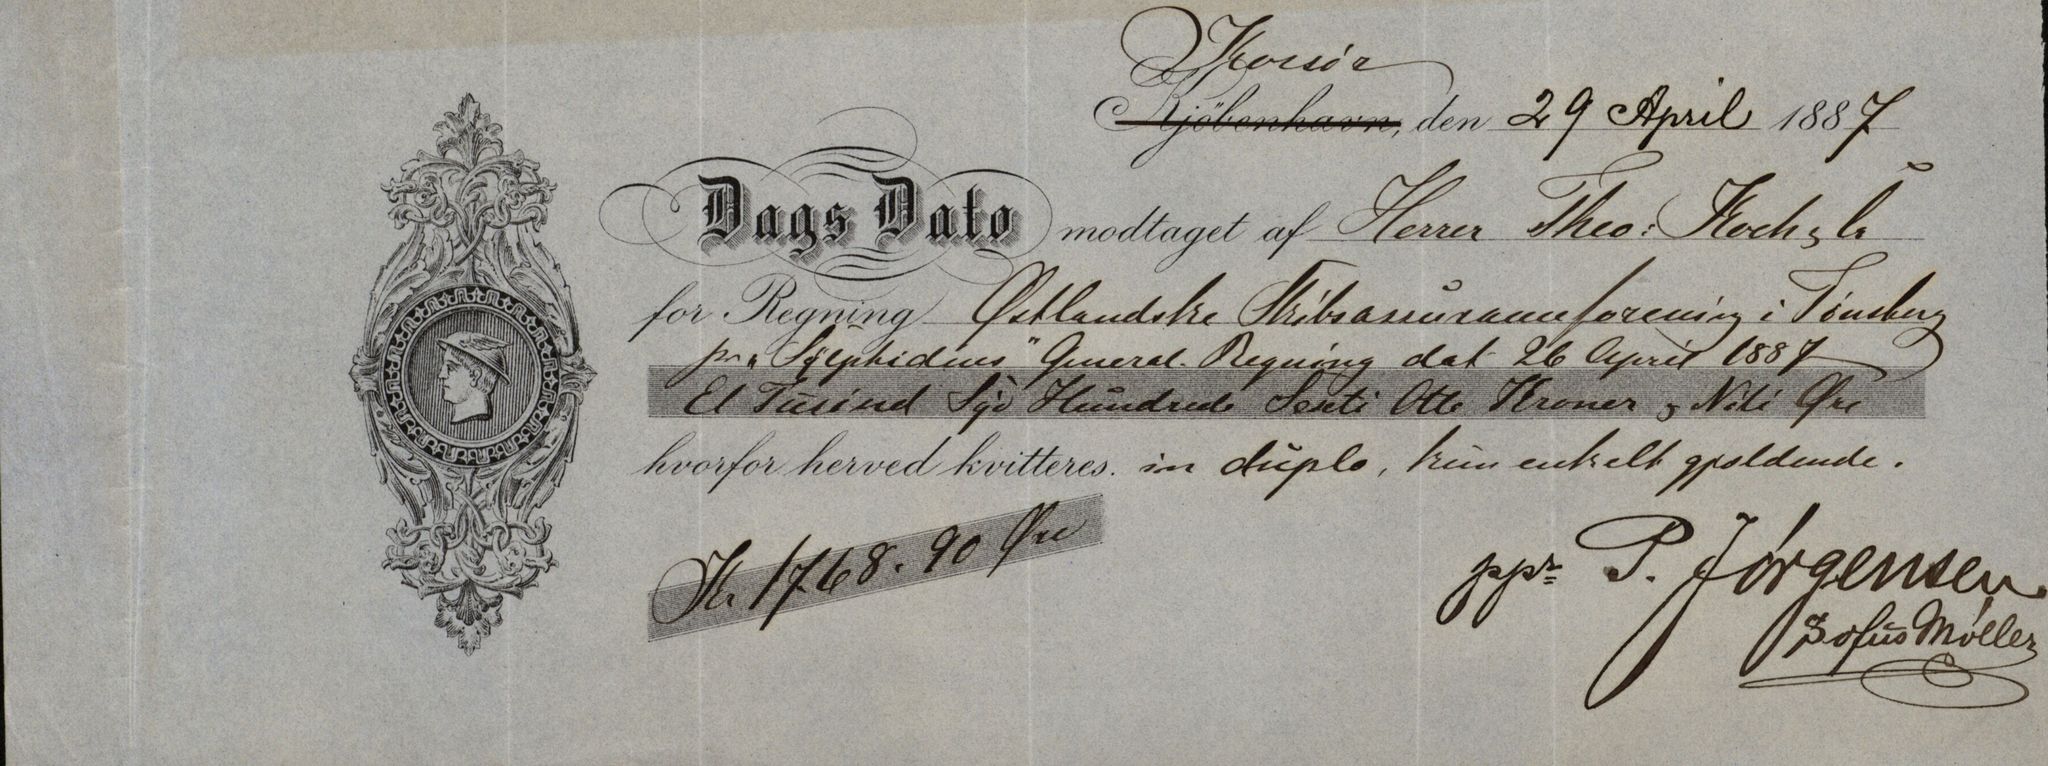 Korsör
Kjöbenhavn, den 29 April 1887
Dags Dato modtaget af Herrer Theo: Koch & Co
for Regning Østlandske Skibsassuranceforening i Tønsberg
pr „Sylphidens" General-Regning dat 26 April 1887
Et Tusind Syv Hundrede Sexti Otte Kroner & Niti Øre
hvorfor herved kvitteres. in duplo, kun enkelt gjældende.
Kr. 1768.90 Øre
ppr P. Jörgensen
Sofus Møller